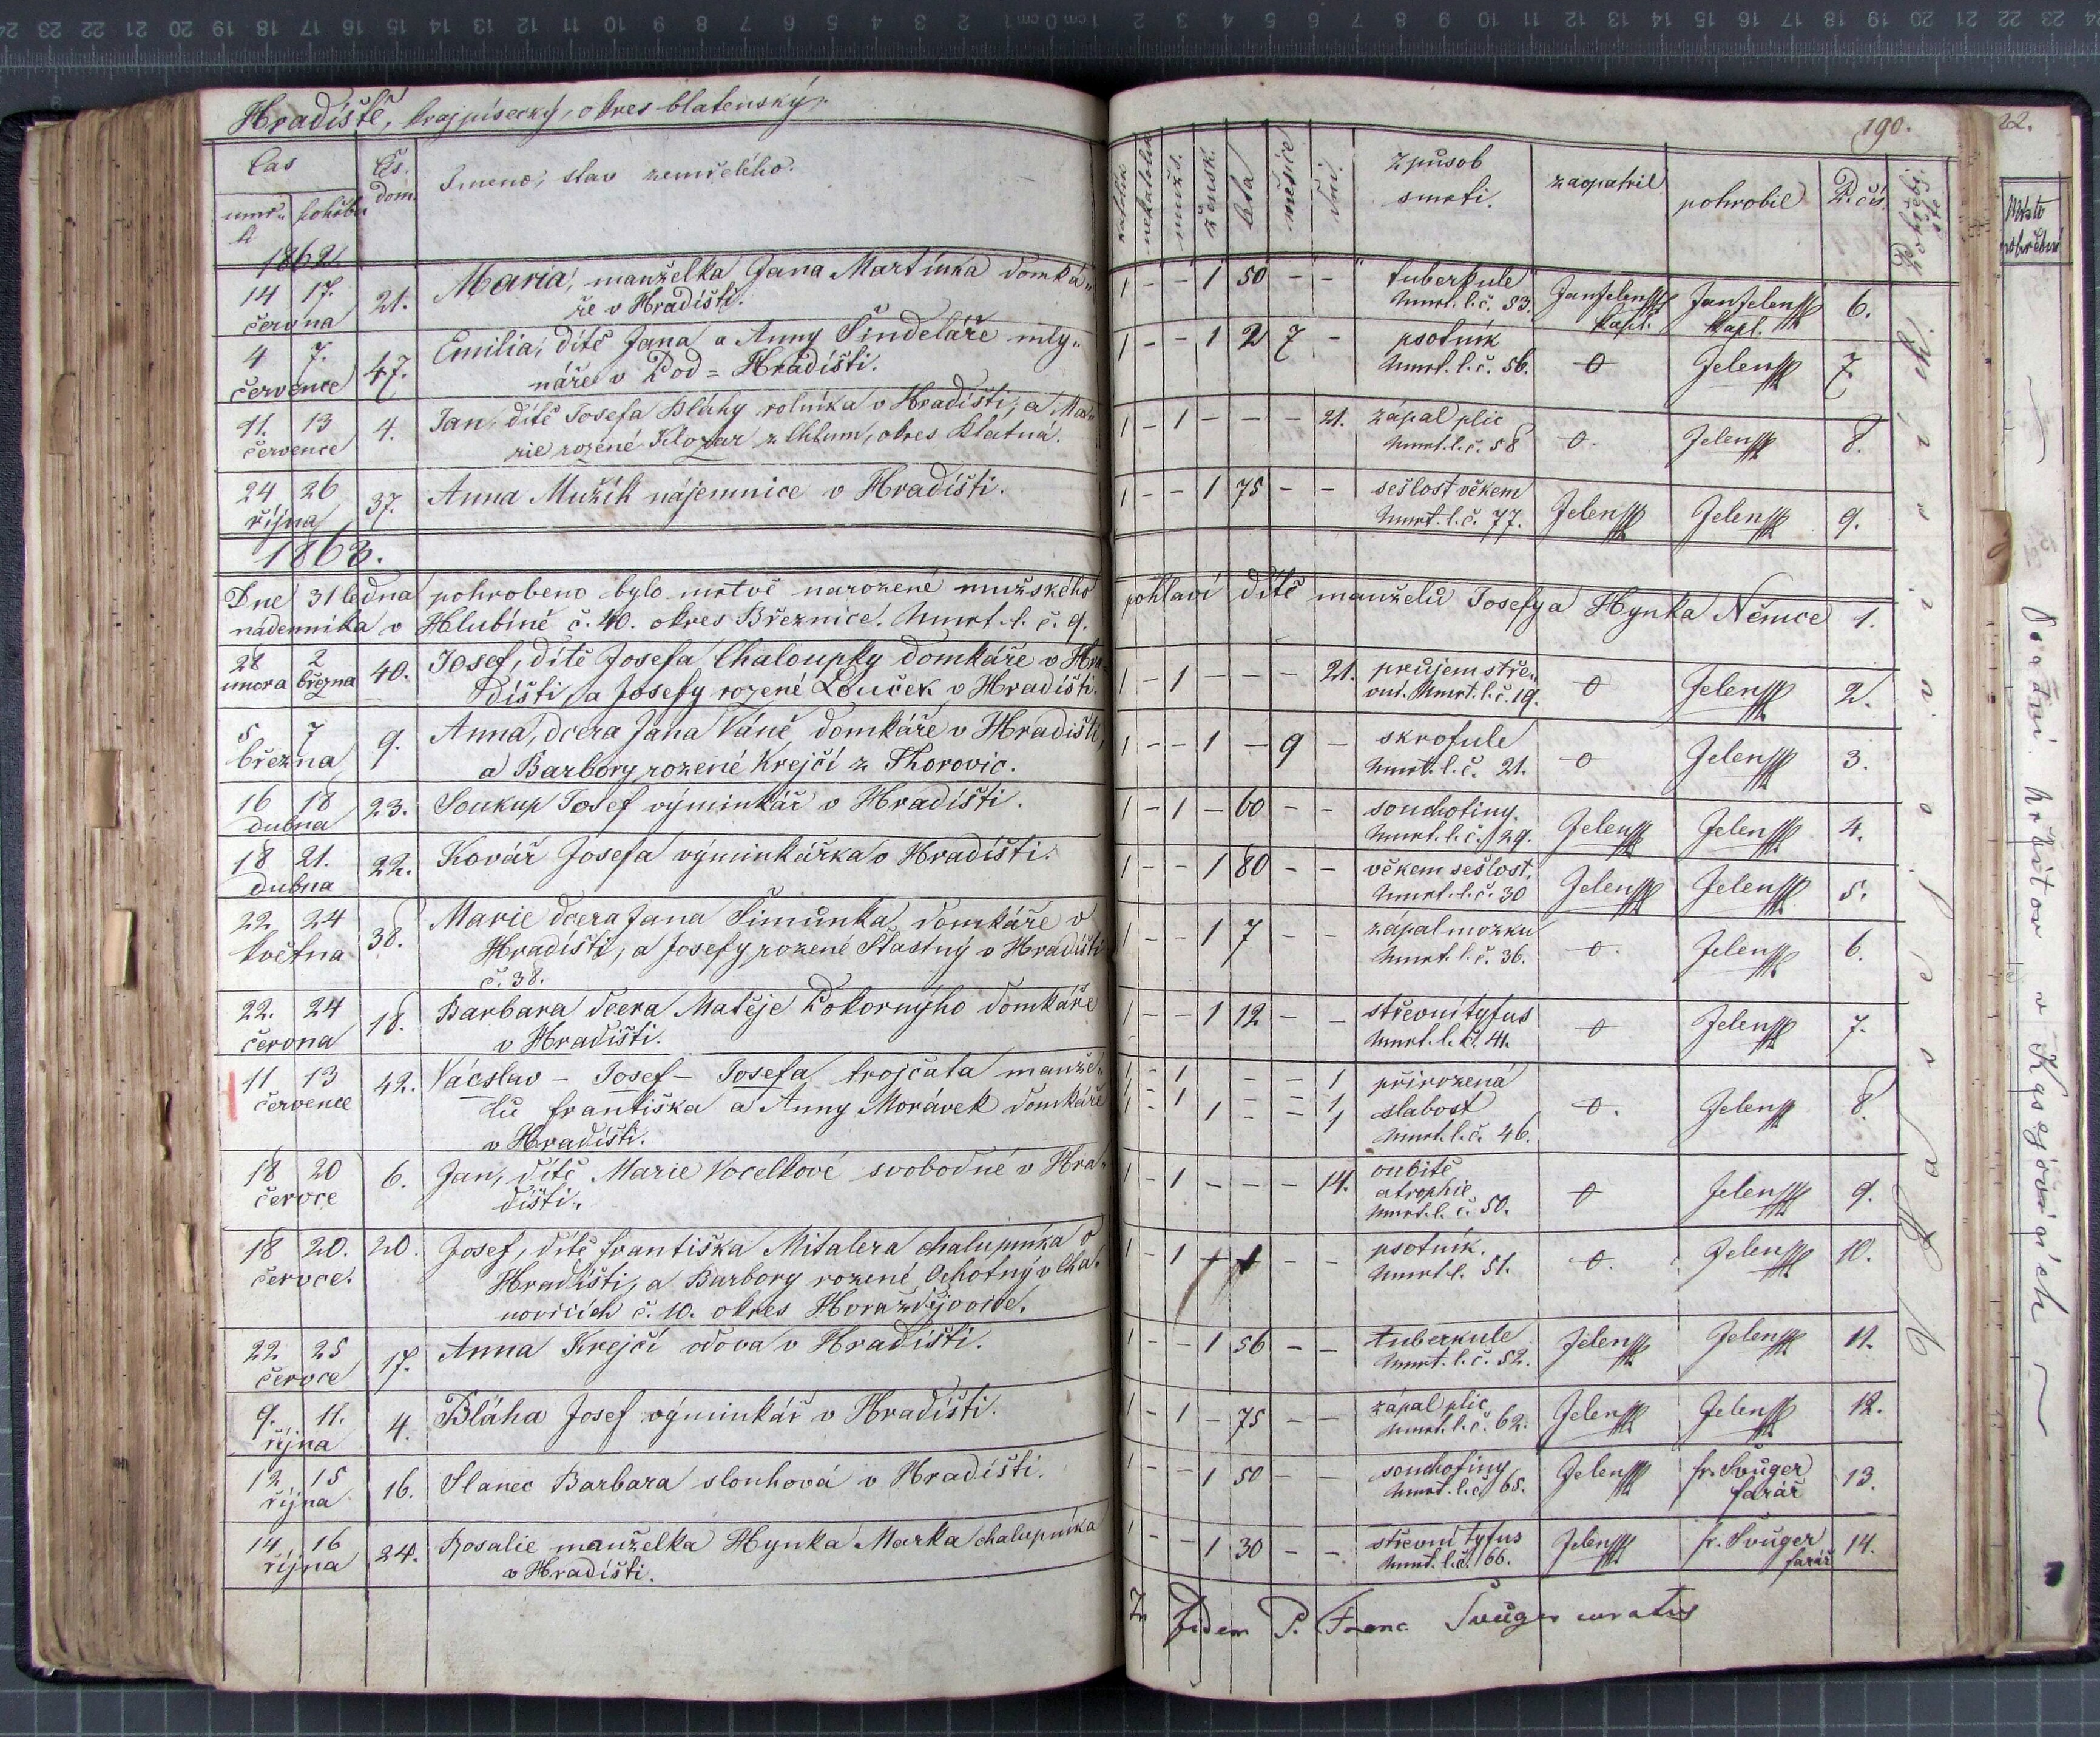 Hradiště, kraj písecký, okres blatenský.
190.
22.
čas
čís. dom.
Jmeno, stav zemřelého.
katolík
nekatolík
mužs.
žensk.
leta
měsíce
dni.
způsob smrti.
zaopatřil
pohrobil
P. čís.
Místo
pohřební
1862
14 17. června 21. Maria, manželka Jana Martínka domká-
ře v Hradišti. 1 - - 1 50 - - tuberkule
Umrt. l. č. 53. Jan Jelen kapl. Jan Jelen kapl. 6.
4 7. července 47. Emilia, dítě Jana a Anny Šindeláře mly-
náře v Pod-Hradišti. 1 - - 1 2 7 - psotník
Umrt. l. č. 56. 0 Jelen 7.
11. 13 července 4. Jan, dítě Josefa Bláhy rolníka v Hradišti, a Ma-
rie rozené Klozar z Chlum, okres Blatná. 1 - 1 - - - 21. zápal plic
Umrt. l. č. 58 0. Jelen 8.
24 26 října 37. Anna Mužík nájemnice v Hradišti. 1 - - 1 75 - - sešlost věkem
Umrt. l. č. 77. Jelen Jelen 9.
1863.
Dne 31 ledna pohrobeno bylo mrtvě narozené mužského pohlaví dítě manželů Josefy a Hynka Němce 1.
nádenníka v Hlubíně č. 40. okres Březnice. Umrt. l. č. 9.
28 února 2 března 40. Josef, dítě Josefa Chaloupky domkáře v Hra-
dišti, a Josefy rozené Louček v Hradišti. 1 - 1 - - - 21. průjem stře-
vní. Umrt. l. č. 19. 0 Jelen 2.
5 7 března 9. Anna, dcera Jana Váně, domkáře v Hradišti,
a Barbory rozené Krejčí z Skorovic. 1 - - 1 - 9 - skrofule
Umrt. l. č. 21. 0 Jelen 3.
16 18 dubna 23. Soukup Josef výminkář v Hradišti. 1 - 1 - 60 - - souchotiny.
Umrt. l. č. 29. Jelen Jelen 4.
18 21. dubna 22. Kovář Josefa výminkářka v Hradišti. 1 - - 1 80 - - věkem sešlost.
Umrt. l. č. 30 Jelen Jelen 5.
22. 24 května 38. Marie dcera Jana Šimůnka, domkáře v
Hradišti, a Josefy rozené Šťastný v Hradišti
č. 38. 1 - - 1 7 - - zápal mozku
Umrt. l. č. 36. 0. Jelen 6.
22. 24 června 18. Barbara dcera Matěje Pokornýho domkáře
v Hradišti. 1 - - 1 12 - - střevní tyfus
Umrt. l. č. 41. 0 Jelen 7.
11 13 července 42. Václav - Josef - Josefa trojčata manže-
lů františka a Anny Morávek domkáře
v Hradišti. přirozená
slabost
Umrt. l. č. 46. 0. Jelen 8.
18 20 červce 6. Jan, dítě Marie Vocelkové svobodné v Hra-
dišti. 1 - 1 - - - 14. oubitě
atrophie
Umrt. l. č. 50. 0 Jelen 9.
18 20. červce. 20. Josef, dítě františka Mitalera chalupníka v
Hradišti, a Barbory rozené Ochotný v Cha-
novicích č. 10. okres Horažďjovice. 1 - 1 - 1 - - psotník.
Umrt. l. 51. 0. Jelen 10.
22 25 červce 17. Anna Krejčí vdova v Hradišti. 1 - - 1 56 - - tuberkule
Umrt. l. č. 52. Jelen Jelen 11.
9. 11. října 4. Bláha Josef výminkář v Hradišti. 1 - 1 - 75 - - zápal plic
Umrt. l. č. 62. Jelen Jelen 12.
12 15 října 16. Slanec Barbara slouhová v Hradišti. 1 - - 1 50 - - souchotiny
Umrt. l. č. 65. Jelen fr. Švůger farář 13.
14 16 října 24. Rosalie manželka Hynka Marka chalupníka
v Hradišti. 1 - - 1 30 - - střevní tyfus
Umrt. l. č. 66. Jelen fr. Švůger farář 14.
fidem P. Franc Švůger curatus
hřbitov v Kasejovicích